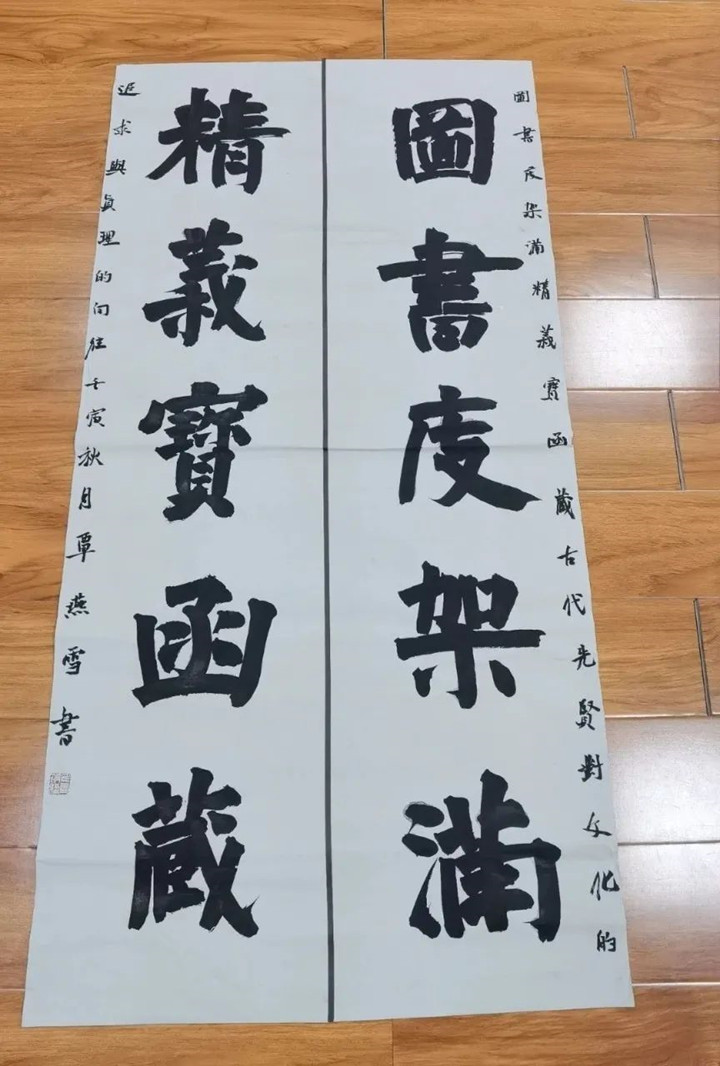 圖書庋架滿精義寶函藏古代先賢對文化的
圖書庋架滿
精義寶函藏
追求與眞理的向往壬寅秋月覃燕雪書